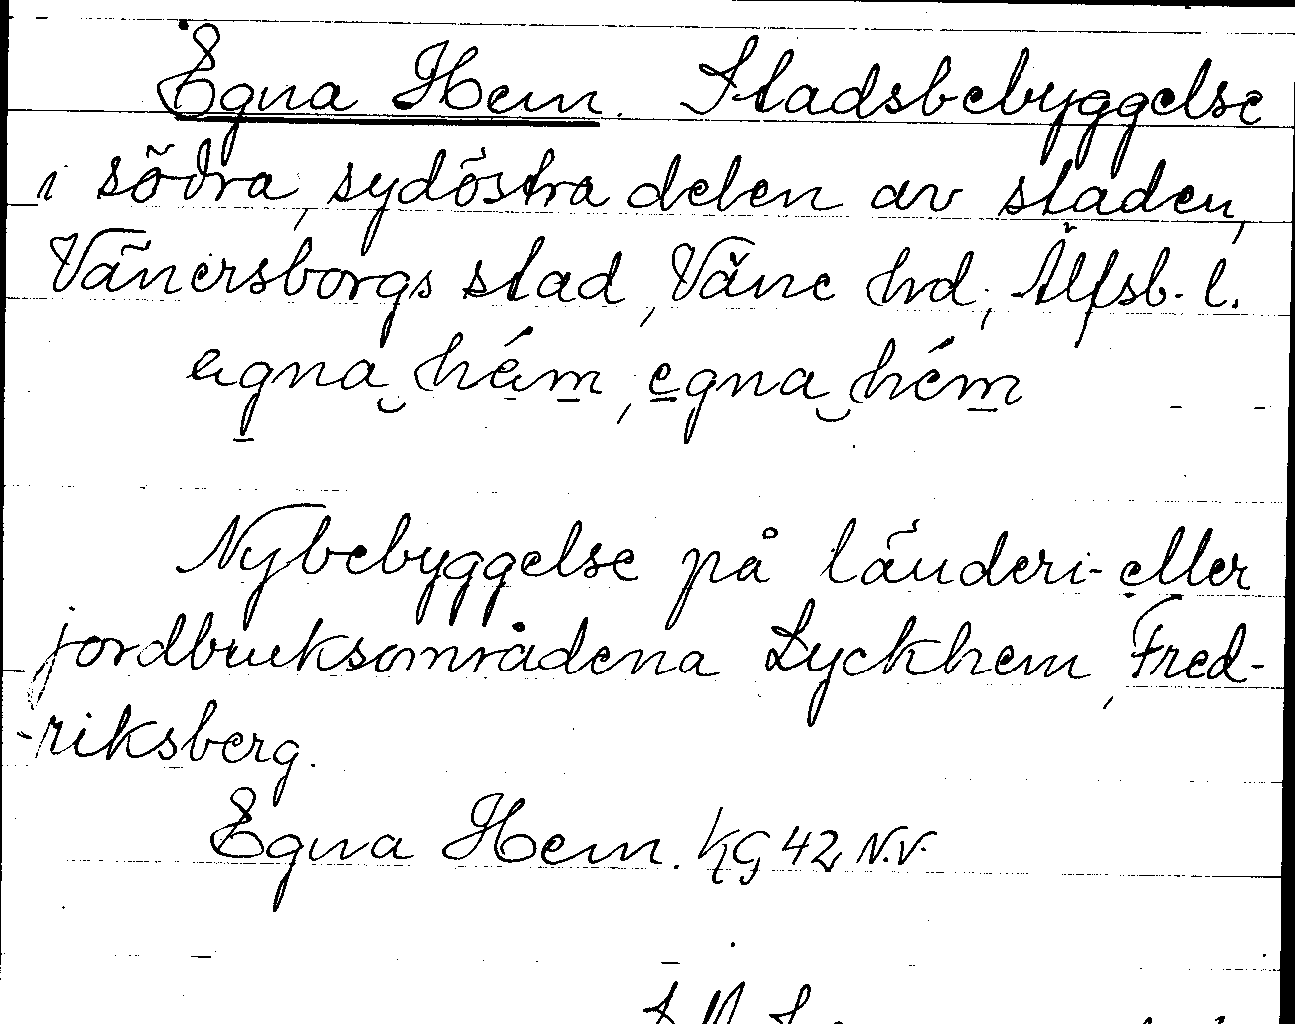 Egna Hem. Stadsbebyggelse
i södra, sydöstra delen av staden,
Vänersborgs stad, Väne hd, Älfsb. l.
egna hém, egna hém
Nybebyggelse på länderi- eller
jordbruksområdena Lyckhem, Fred-
-riksberg.
Egna Hem. KG 42 N.V.